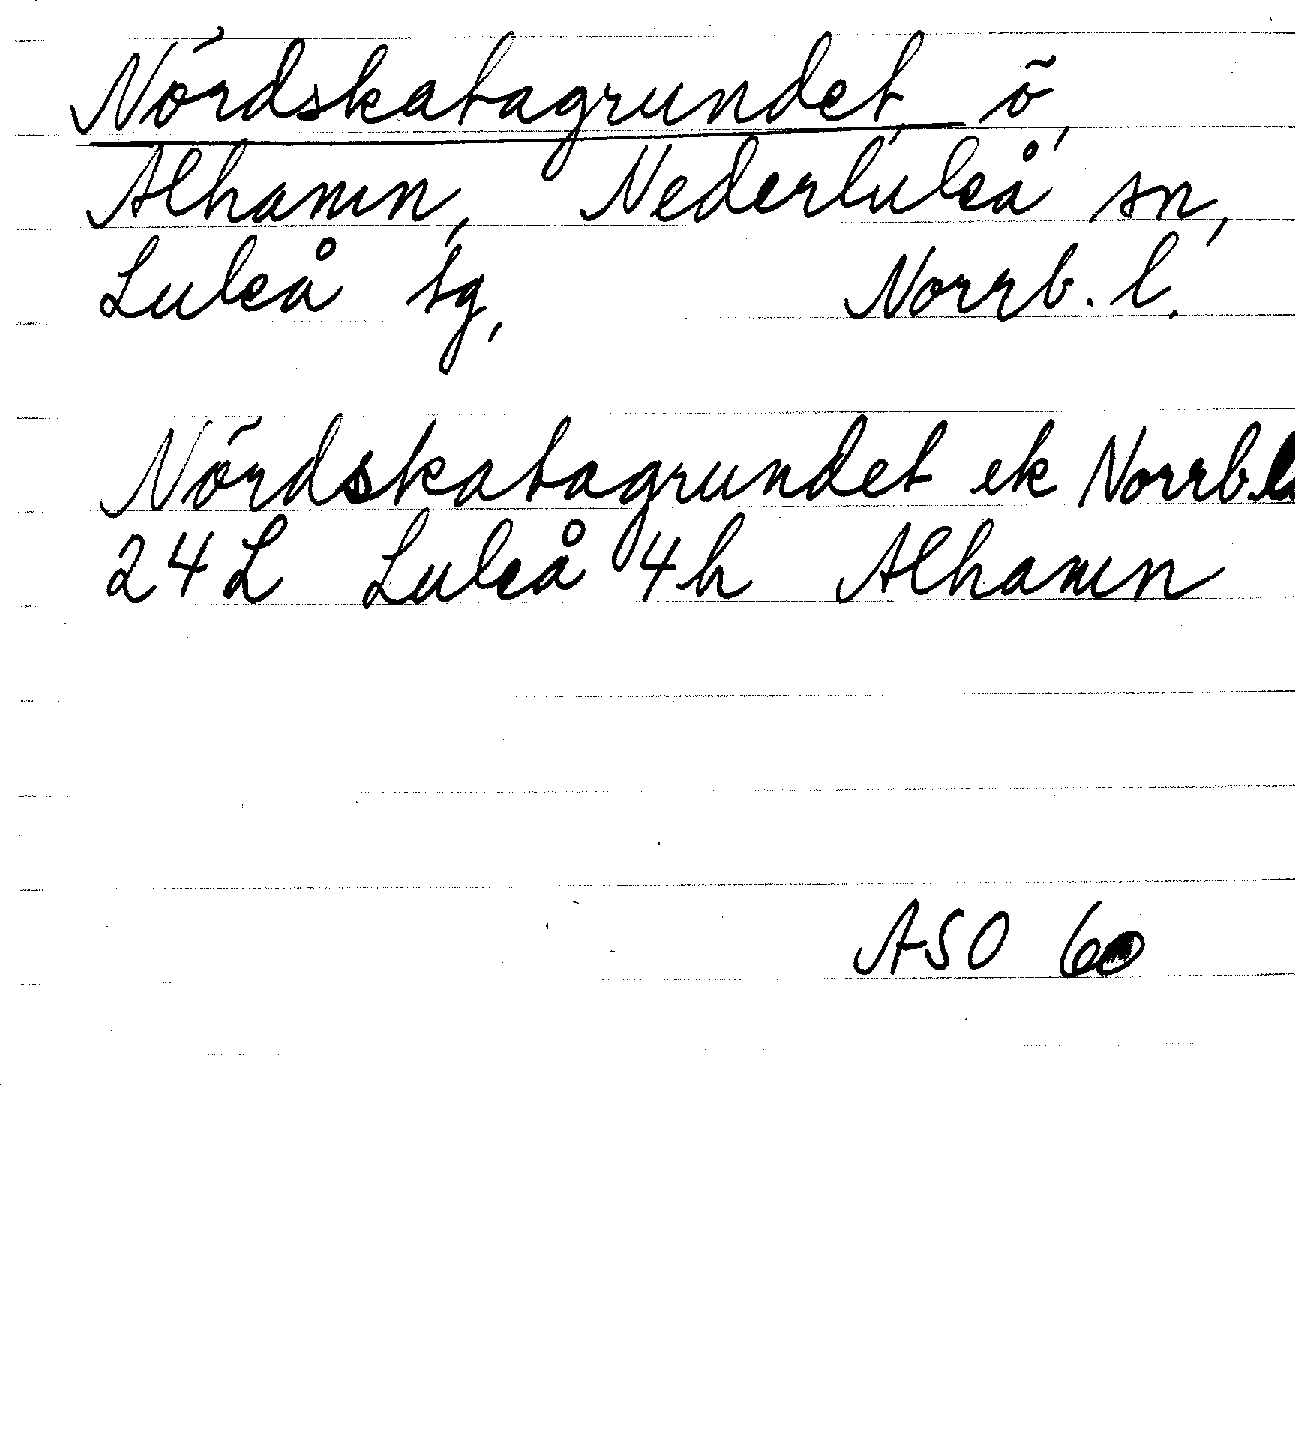 Nördskatagrundet, ö,
Alhamn, Nederluleå sn,
Luleå tg, Norrb. l.
Nördskatagrundet ek Norrb.l.
24L Luleå 4h Alhamn
ASO 60